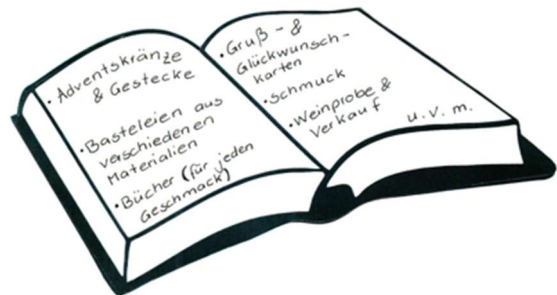 • Adventskränze
& Gestecke
• Basteleien aus
verschiedenen
Materialien
• Bücher (für jeden
Geschmack)
• Gruß- &
Glückwunsch-
karten
• Schmuck
• Weinprobe &
Verkauf
u. v. m.